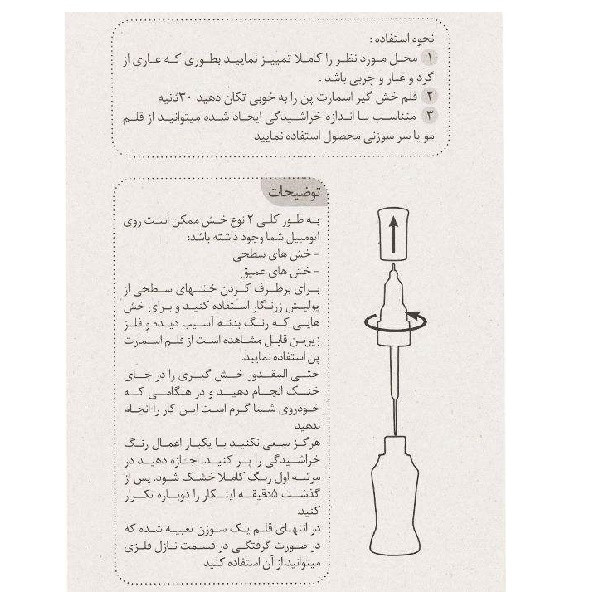 نحوه استفاده :
۱ محل مورد نظر را کاملا تمییز نمایید بطوری که عاری از
گرد و غبار و چربی باشد .
۲ قلم خش گیر اسمارت پن را به خوبی تکان دهید ۳۰ثانیه
۳ متناسب با اندازه خراشیدگی ایجاد شده میتوانید از قلم
مو یا سر سوزنی محصول استفاده نمایید
توضیحات
به طور کلی ۲ نوع خش ممکن است روی
اتومبیل شما وجود داشته باشد:
- خش های سطحی
- خش های عمیق
برای برطرف کردن خشهای سطحی از
پولیش زرنگار استفاده کنید و برای خش
هایی که رنگ بدنه آسیب دیده و فلز
زیرین قابل مشاهده است از قلم اسمارت
پن استفاده نمایید.
حتی المقدور خش گیری را در جای
خنک انجام دهید و در هنگامی که
خودروی شما گرم است این کار را انجام
ندهید.
هرگز سعی نکنید با یکبار اعمال رنگ
خراشیدگی را پر کنید. اجازه دهید در
مرتبه اول رنگ کاملا خشک شود. پس از
گذشت ۱۵دقیقه اینکار را دوباره تکرار
کنید.
در انتهای قلم یک سوزن تعبیه شده که
در صورت گرفتگی در قسمت نازل فلزی
میتوانید از آن استفاده کنید